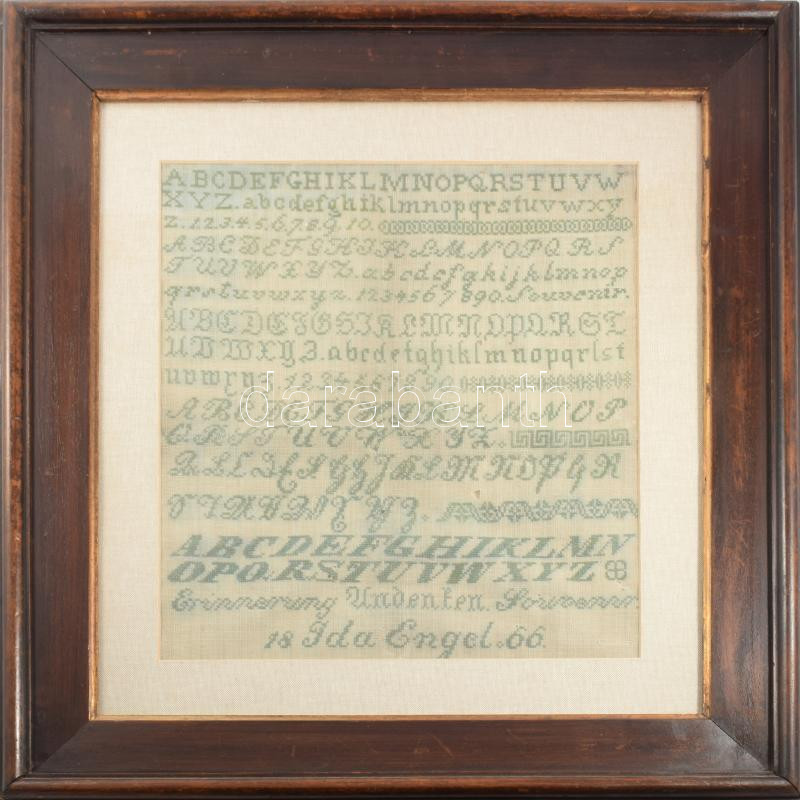 ABCDEFGHIKLMNOPQRSTUVW
XYZ.abcdefghiklmnopqrstuvwxy
z.1.2.3.4.5.6.7.8.9.10.
ABCDEFGHIKLMNOPQRS
TUVWXYZ.abcdefghijklmnop
qrstuvwxyz.1234567890.Souvenir.
ABCDEFGHIKLMNOPQRST
UVWXYZ.abcdefghiklmnopqrſst
uvwxyz.1234567890.
darabanth
ABCDEFGHIKLMNOP
QRSTUVWXYZ.
ABCDEFGHIKLMN
OPQRSTUVWXYZ
Erinnerung Andenken. Souvenir
18 Ida Engel.66.